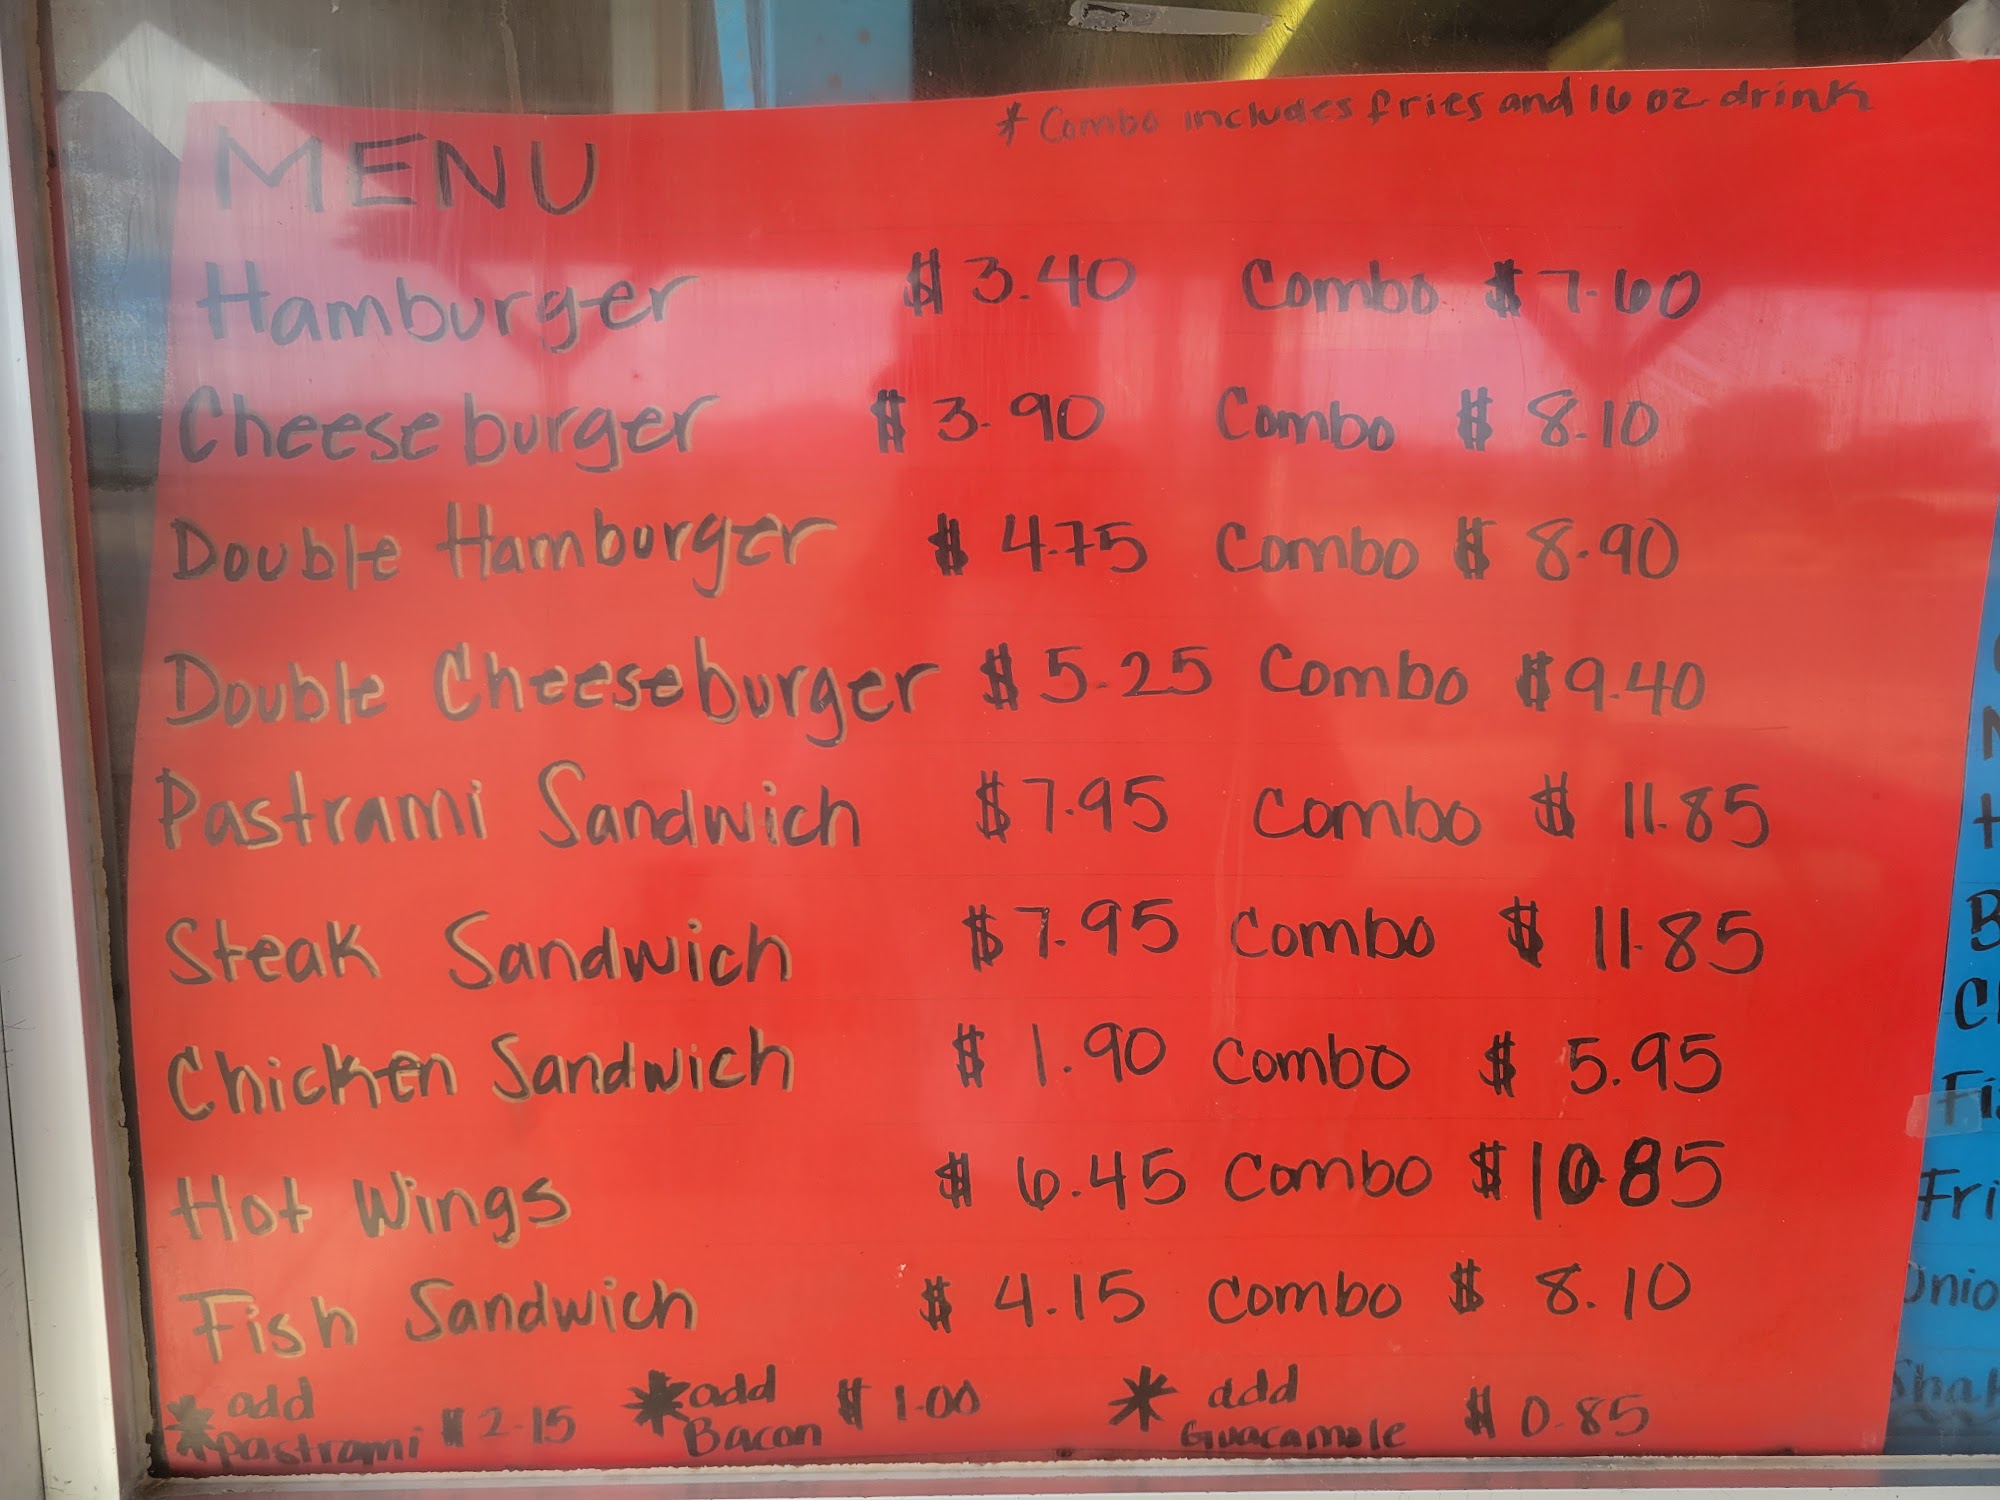 * Combo includes fries and 16 oz drink
MENU
Hamburger $3.40 Combo $7.60
Cheeseburger $3.90 Combo $8.10
Double Hamburger $4.75 Combo $8.90
Double Cheeseburger $5.25 Combo $9.40
Pastrami Sandwich $7.95 Combo $11.85
Steak Sandwich $7.95 Combo $11.85
Chicken Sandwich $1.90 Combo $5.95
Hot Wings $6.45 Combo $10.85
Fish Sandwich $4.15 Combo $8.10
* add pastrami $2.15 * add Bacon $1.00 * add Guacamole $0.85